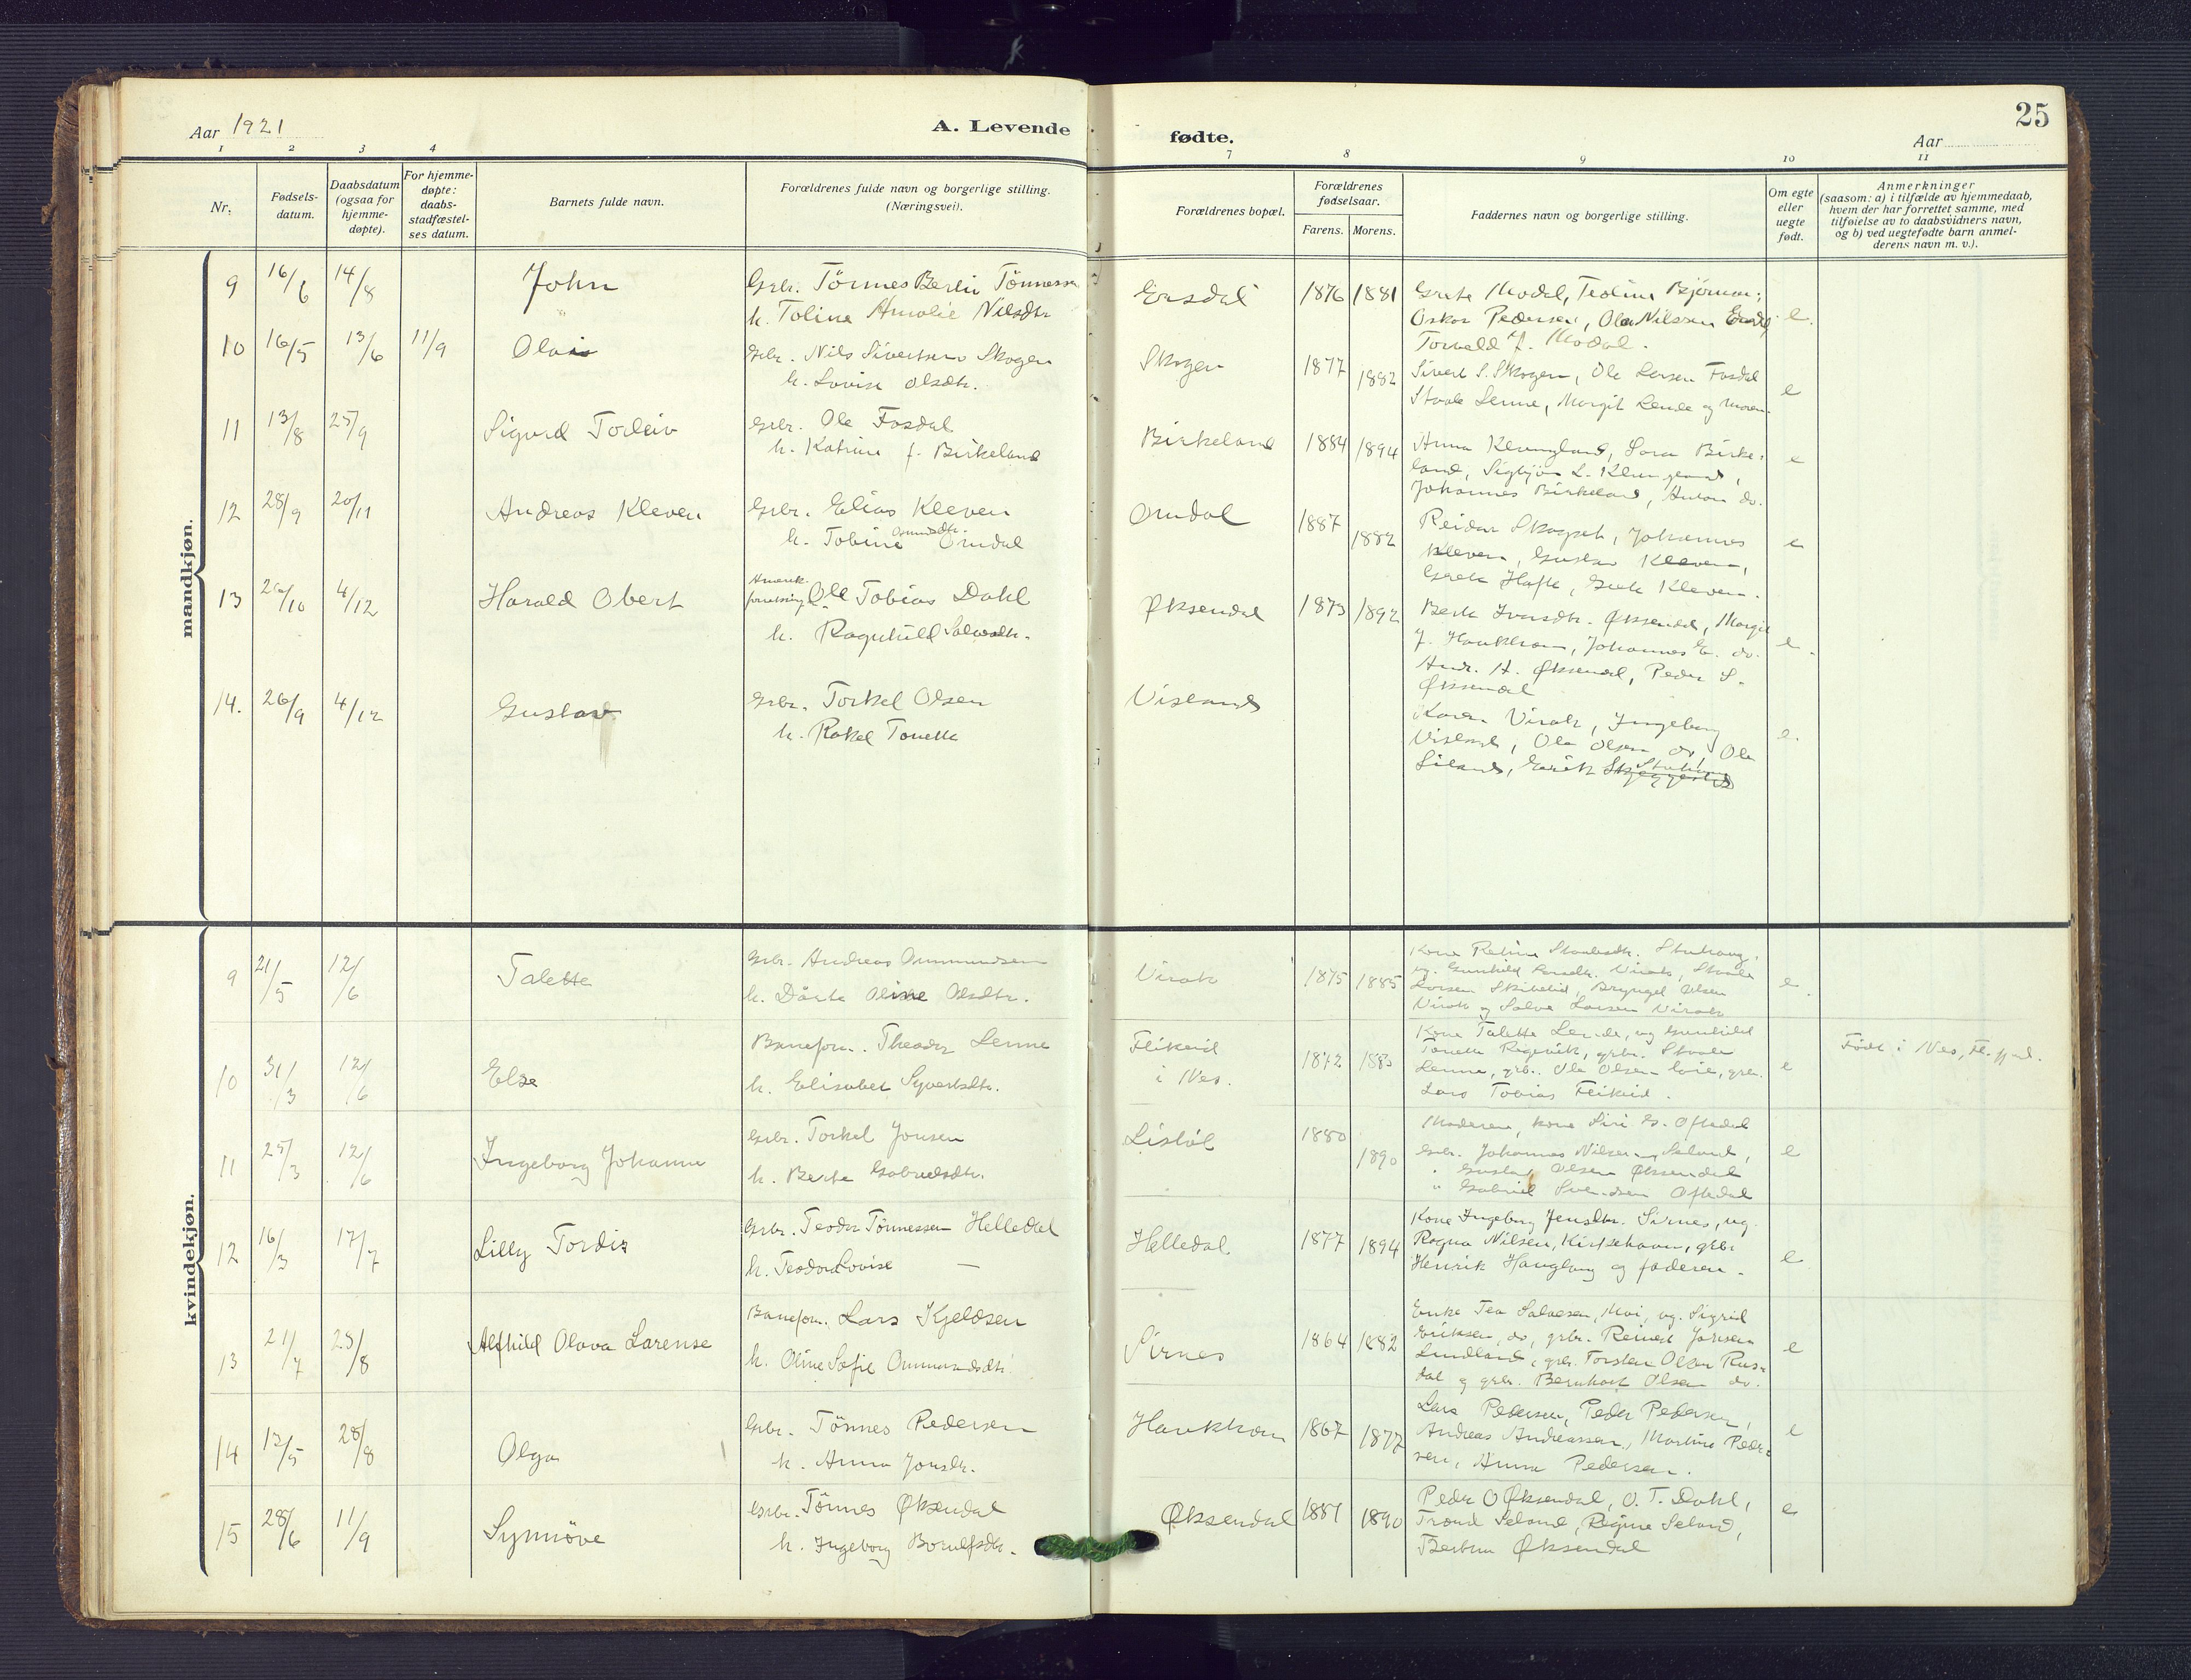 25
Aar 1921
A. Levende
fødte.
Aar
1 2 3 4 7 8 9 10 11
Nr.
Fødsels-
datum.
Daabsdatum
(ogsaa for
hjemme-
døpte).
For hjemme-
døpte:
daabs-
stadfæstel-
ses datum.
Barnets fulde navn.
Forældrenes fulde navn og borgerlige stilling.
(Næringsvei).
Forældrenes bopæl.
Forældrenes
fødselsaar.
Farens. Morens.
Faddernes navn og borgerlige stilling.
Om egte
eller
uegte
født.
Anmerkninger
(saasom: a) i tilfælde av hjemmedaab,
hvem der har forrettet samme, med
tilføielse av to daabsvidners navn,
og b) ved uegtefødte barn anmel-
derens navn m. v.).
mandkjøn.
9 16/6 14/8 John
Grbr. Tönnes Berlin Tönnessen
h. Toline Amalie Nilsdtr
Ersdal 1876 1881
Grete Modal, Teoline Bjørnm;
Oskar Pedersen, Ola Nilssen
Torvald J. Modal.
e.
10 16/5 13/6 11/9 Olai
Grbr. Nils Sivertsen Skogen
h. Lovise Olsdtr.
Skogen 1877 1882
Sivert S. Skogen, Ole Larsen Fosdal
Staale Lenne, Margit Lende og moren.
e
11 13/8 25/9 Sigurd Torleiv
Grbr. Ole Fosdal
h. Katrine f. Birkeland
Birkeland 1884 1894
Anna Klungland, Sara Birke-
land, Sigbjörn L. Klungland,
Johannes Birkeland, Anton do.
e
12 28/9 20/11 Andreas Kleven
Grbr. Elias Kleven
h. Tobine Omdal
Omdal 1887 1882
Reidar Johannes
Kleven, Gustav Kleven,
Grete Hafte, Kleven.
e
13 26/10 4/12 Harald Obert
Ole Tobias Dahl
h. Ragnhild
Øksendal 1873 1892
Berte Øksendal, Margit
J. Haukhom, Johannes E. do.
Andr. A. Øksendal, Peder S.
Øksendal
e.
14. 26/9 4/12 Gustav
Grbr. Torkel Olsen
h. Rakel Tonette
Visland
Karen Virak, Ingeborg
Visland, Ole Olsen do, Ole
Liland,
e.
kvindekjøn.
9 21/5 12/6 Talette
Grbr. Andreas Ommundsen
h. Dårte Oline Olsdtr.
Virak 1875 1885
Kone
ug. Gunhild Virak, Staale
Larsen Bryngel Olsen
Virak og Salve Larsen Virak
e.
10 31/3 12/6 Else
Banefm. Theodor Lenne
h. Elisabet Syvertsdtr.
Fleikeid
i Nes.
1872 1883
Kone Talette Lende, ug Gunhild
Tonette grbr. Staale
Lenne, grbr. Ole Olsen grbr.
Lars Tobias Fleikeid.
e
Født i Nes, Fl. fjord.
11 25/3 12/6 Ingeborg Johanne
Grbr. Torkel Jonsen
h. Berte Gabrielsdtr.
Listöl 1880 1890
Moderen, kone Siri G. Oftedal
Grbr. Johannes Nilsen Seland,
" Gustav Olsen Øksendal
" Gabriel Svendsen Oftedal
e
12 16/3 17/7 Lilly Tordis
Grbr. Teodor Tönnessen Helledal
h. Teodora Lovise —
Helledal 1877 1894
Kone Ingeborg Jensdtr. Sirnes, ug.
Ragna Nilsen, Kirkehavn, grbr
Henrik Haugland og faderen.
e
13 21/7 25/8 Alfhild Olava Larense
Banefm. Lars Kjeldsen
h. Oline Sofie Ommundsdtr.
Sirnes 1864 1882
Enke Tea Salvesen, Moi, ug. Sigrid
Eriksen, do, grbr. Reinert Johnsen
Lundland, grbr. Torsten Olsen Rus-
dal og grbr. Bernhart Olsen do.
e
14 12/5 28/8 Olga
Grbr. Tönnes Pedersen
h. Anna Jonsdtr.
Haukhom 1867 1877
Lars Pedersen, Peder Pedersen,
Andreas Andreassen, Martine Peder-
sen, Anna Pedersen.
e
15 28/6 11/9 Synnöve
Grbr. Tönnes Øksendal
h. Ingeborg Borulfsdtr.
Øksendal 1881 1890
Peder O Øksendal, O. T. Dahl,
Trond Seland, Regine Seland,
Bertine Øksendal
e